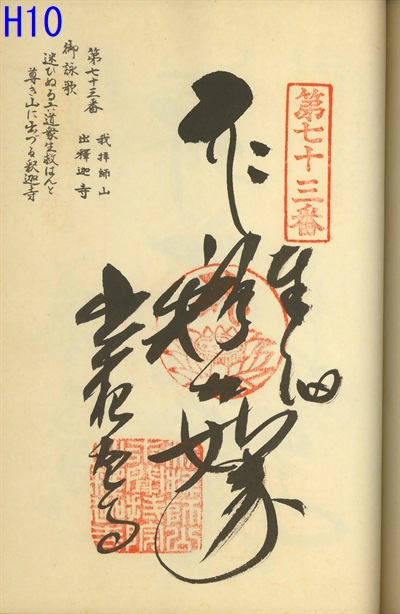 H10
第七十三番
奉納
釋迦如来
出釈迦寺
第七十三番
我拝師山
出釋迦寺
御詠歌
迷ひぬる六道衆生救はんと
尊き山に出づる釈迦寺